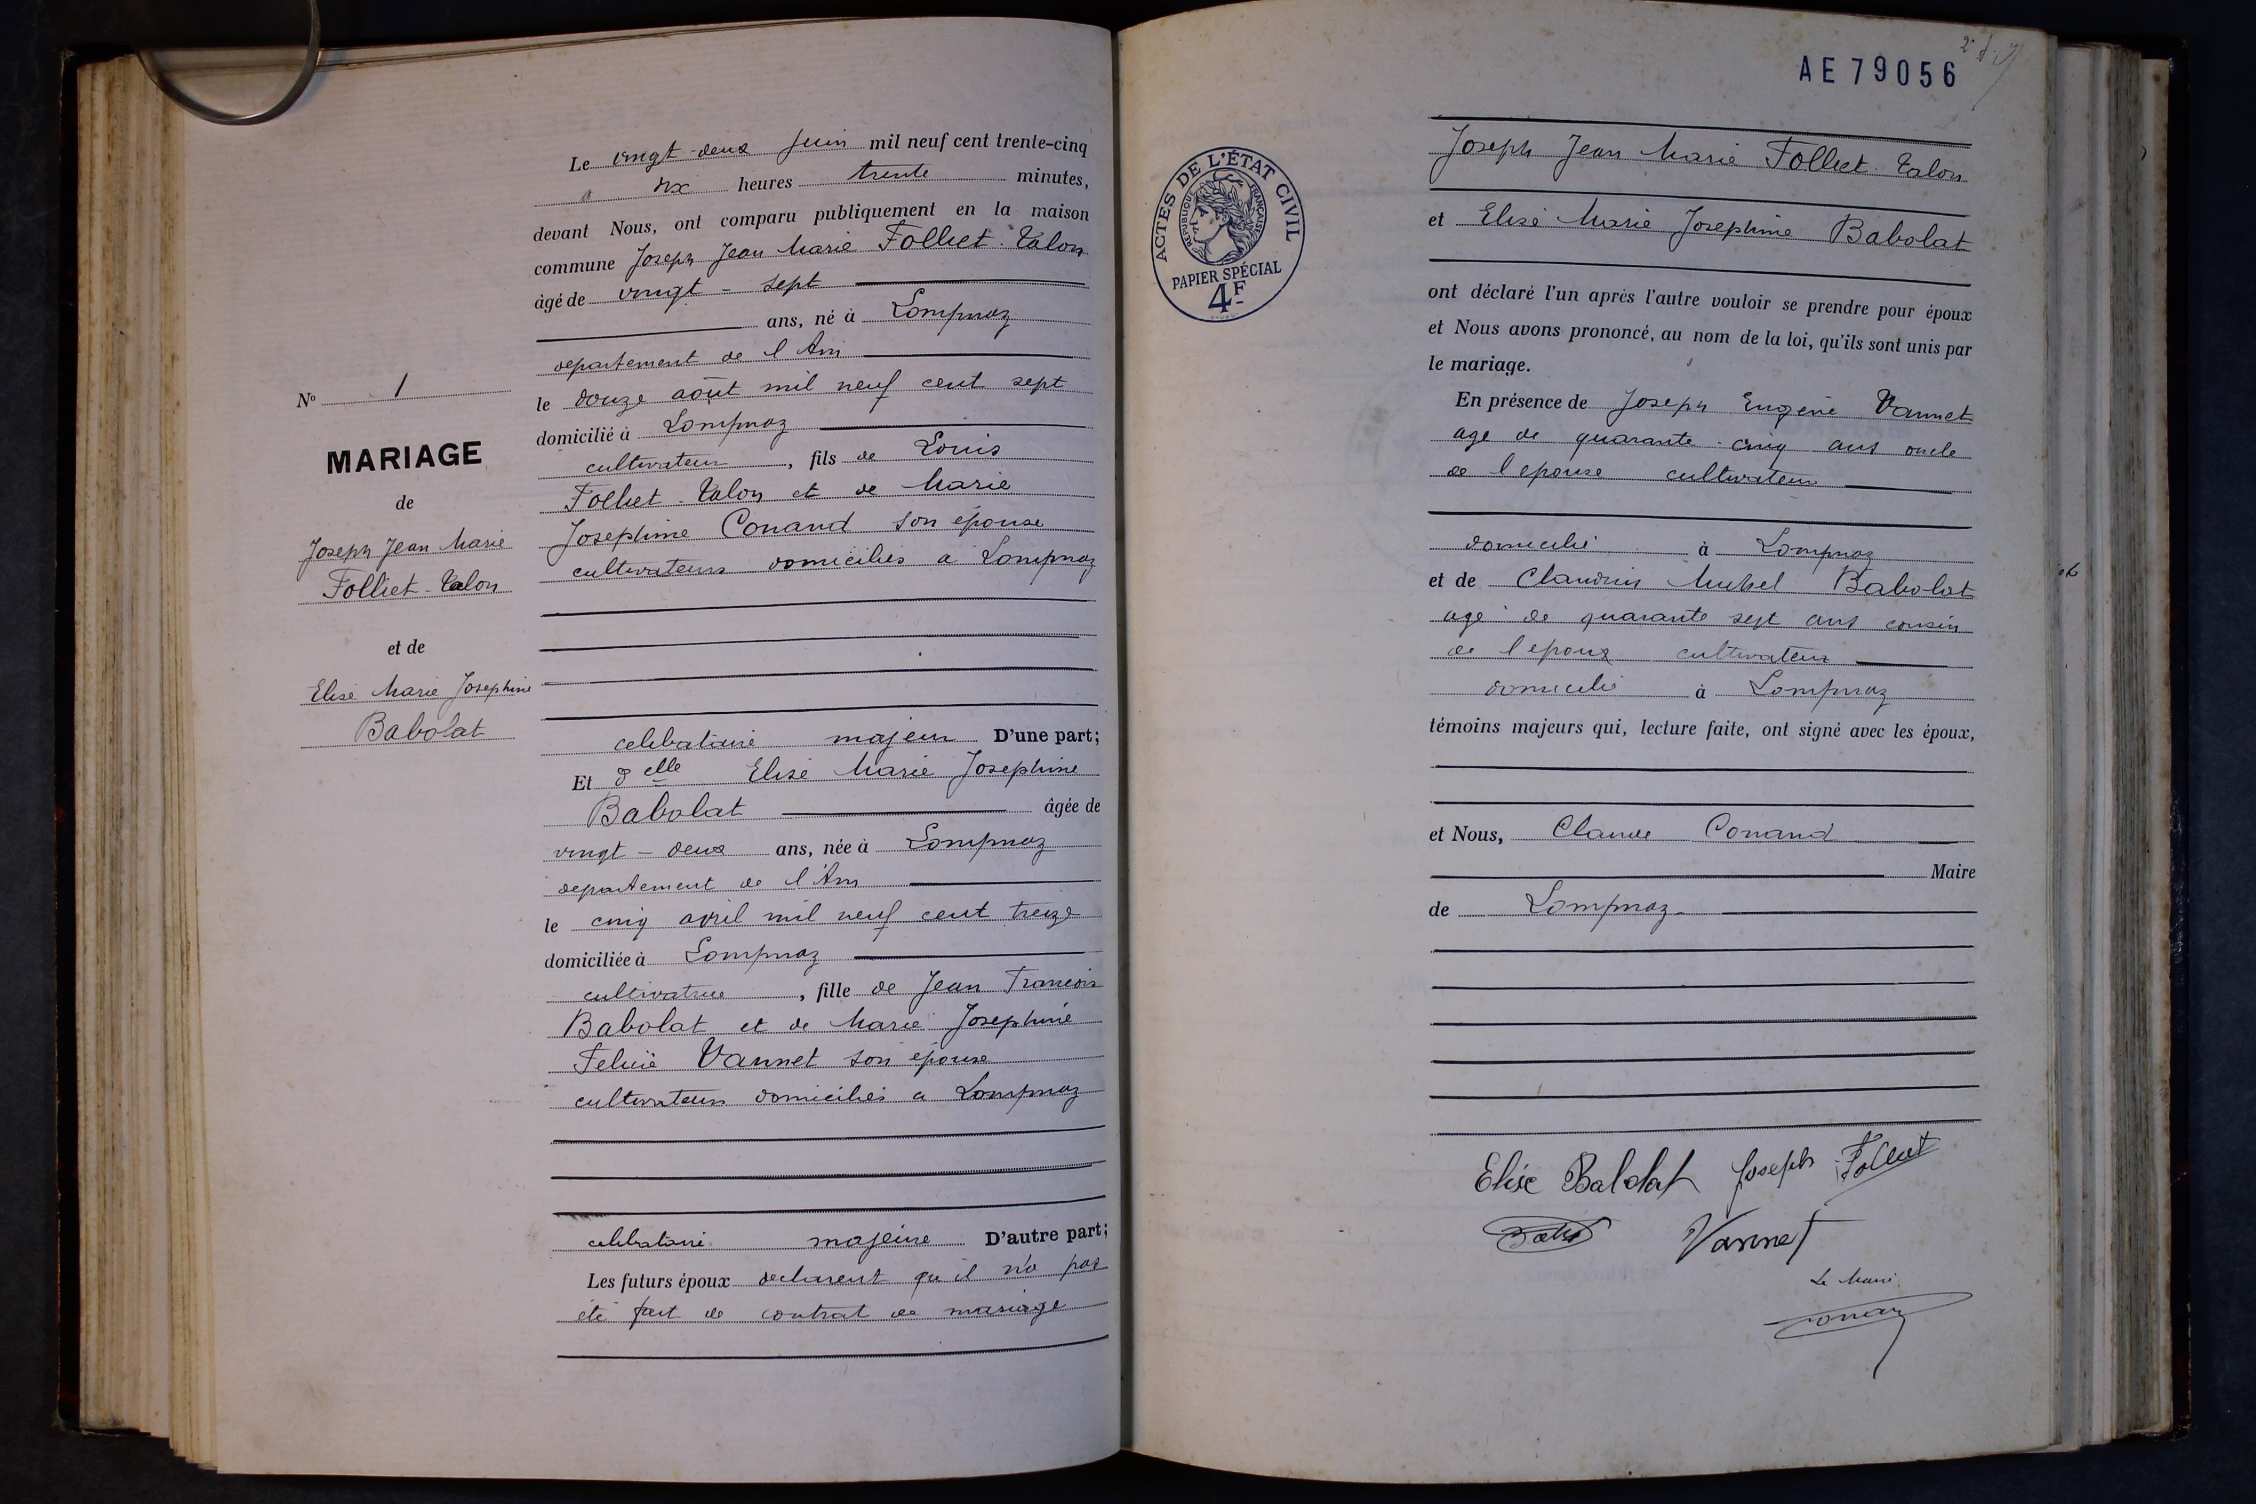 Le vingt-deux Juin mil neuf cent trente-cinq
à dix heures trente minutes,
devant Nous, ont comparu publiquement en la maison
commune Joseph Jean Marie Folliet-Talon
âgé de vingt-sept
ans, né à Lompnaz
departement de l'Ain
le douze août mil neuf cent sept
domicilié à Lompnaz
cultivateur, fils de Louis
Folliet-Talon et de Marie
Josephine Conand son épouse
cultivateurs domiciliés a Lompnaz
celibataire majeur D'une part;
Et delle Elise Marie Josephine
Babolat âgée de
vingt-deux ans, née à Lompnaz
departement de l'Ain
le cinq avril mil neuf cent treize
domiciliée à Lompnaz
cultivatrice, fille de Jean Francois
Babolat et de Marie Josephine
Felicie Vannet son épouse
cultivateurs domiciliés a Lompnaz
celibataire majeure D'autre part;
Les futurs époux declarent qu'il n'a pas
été fait de contrat de mariage
No 1
MARIAGE
de
Joseph Jean Marie
Folliet-Talon
et de
Elise Marie Josephine
Babolat
AE79056
ACTES DE L'ÉTAT CIVIL
RÉPUBLIQUE FRANÇAISE
PAPIER SPÉCIAL
4F
Joseph Jean Marie Folliet-Talon
et Elise Marie Josephine Babolat
ont déclaré l'un après l'autre vouloir se prendre pour époux
et Nous avons prononcé, au nom de la loi, qu'ils sont unis par
le mariage.
En présence de Joseph Eugène Vannet
age de quarante-cinq ans oncle
de l'epouse cultivateur
domicilié à Lompnaz
et de Claudius Michel Babolat
agé de quarante sept ans cousin
de l'epoux cultivateur
domicilié à Lompnaz
témoins majeurs qui, lecture faite, ont signé avec les époux,
et Nous, Claude Conand
Maire
de Lompnaz
Elise Babolat Joseph Folliet
Vannet
Le Maire
Conand